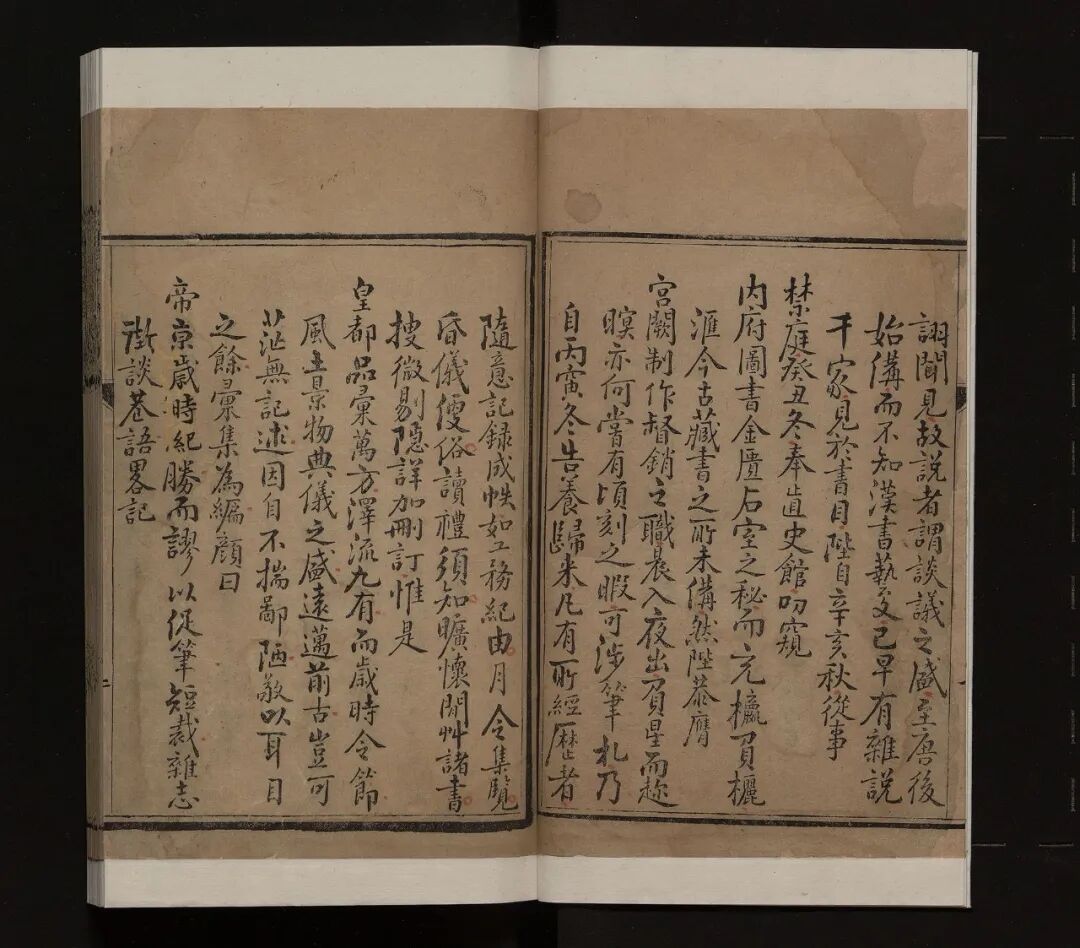 詡聞見故說者謂談議之盛至唐後
始備而不知漢書藝文已早有雜說
千家見於書目陛自辛亥秋從事
禁庭癸丑冬奉直史館叨窺
内府圖書金匱石室之秘而充櫨買櫪
滙今古藏書之所未備然陛恭膺
宮闕制作督銷之職晨入夜出負星而趂
暝亦何嘗有頃刻之暇可涉筆札乃
自丙寅冬告養歸来凡有所經歷者
隨意記録成帙如工務紀由月令集覽
昏儀便俗讀禮須知曠懷閒艸諸書
搜微剔隠詳加刪訂惟是
皇都品彙萬方澤流九有而歲時令節
風土景物典儀之盛遠邁前古豈可
茫無記述因自不揣鄙陋敬以耳目
之餘彙集為編顔曰
帝京歲時紀勝而謬以促筆短裁雜志
街談巷語畧記
二